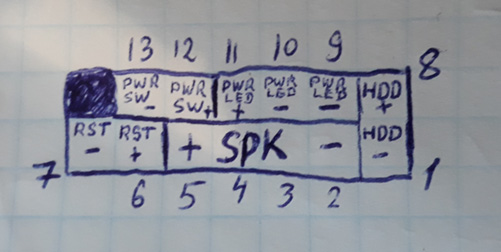 13 12 11 10 9
8
PWR SW - PWR SW + PWR LED + PWR LED - PWR LED - HDD +
RST - RST + + SPK - HDD -
7 1
6 5 4 3 2